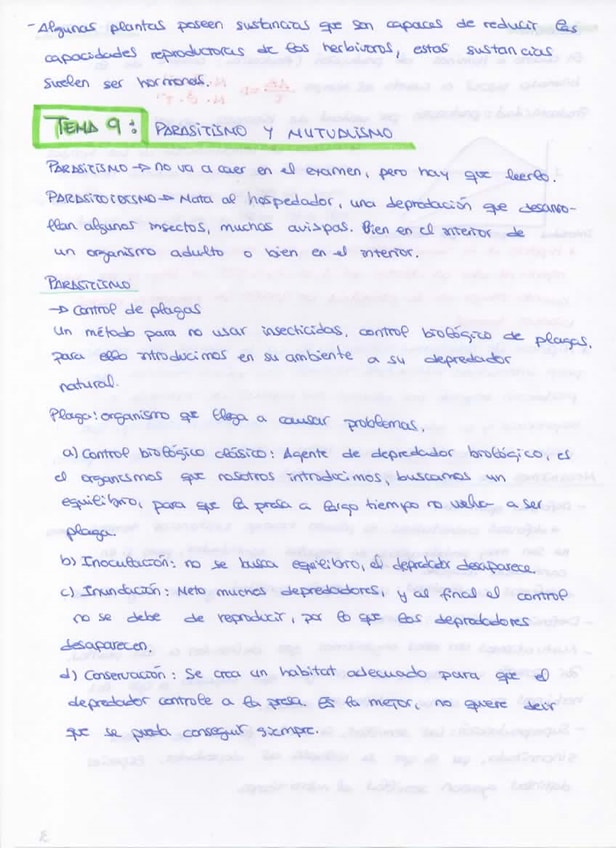 - Algunas plantas poseen sustancias que son capaces de reducir las
capacidades reproductoras de los herbívoros, estas sustancias
suelen ser hormonas.
TEMA 9: PARASITISMO Y MUTUALISMO
PARASITISMO → no va a caer en el examen, pero hay que leerlo.
PARASITOIDISMO → Mata al hospedador, una depredación que desarro-
llan algunos insectos, muchas avispas. Bien en el interior de
un organismo adulto o bien en el interior.
PARASITISMO
→ Control de plagas
Un método para no usar insecticidas, control biológico de plagas,
para ello introducimos en su ambiente a su depredador
natural.
Plaga: organismo que llega a causar problemas.
a) Control biológico clásico: Agente de depredador biológico, es
el organismos que nosotros introducimos, buscamos un
equilibrio, para que la presa a largo tiempo no vuelva a ser
plaga.
b) Inoculación: no se busca equilibrio, el depredador desaparece.
c) Inundación: Meto muchos depredadores, y al final el control
no se debe de reproducir, por lo que los depredadores
desaparecen.
d) Conservación: Se crea un hábitat adecuado para que el
depredador controle a la presa. Es la mejor, no quiere decir
que se pueda conseguir siempre.